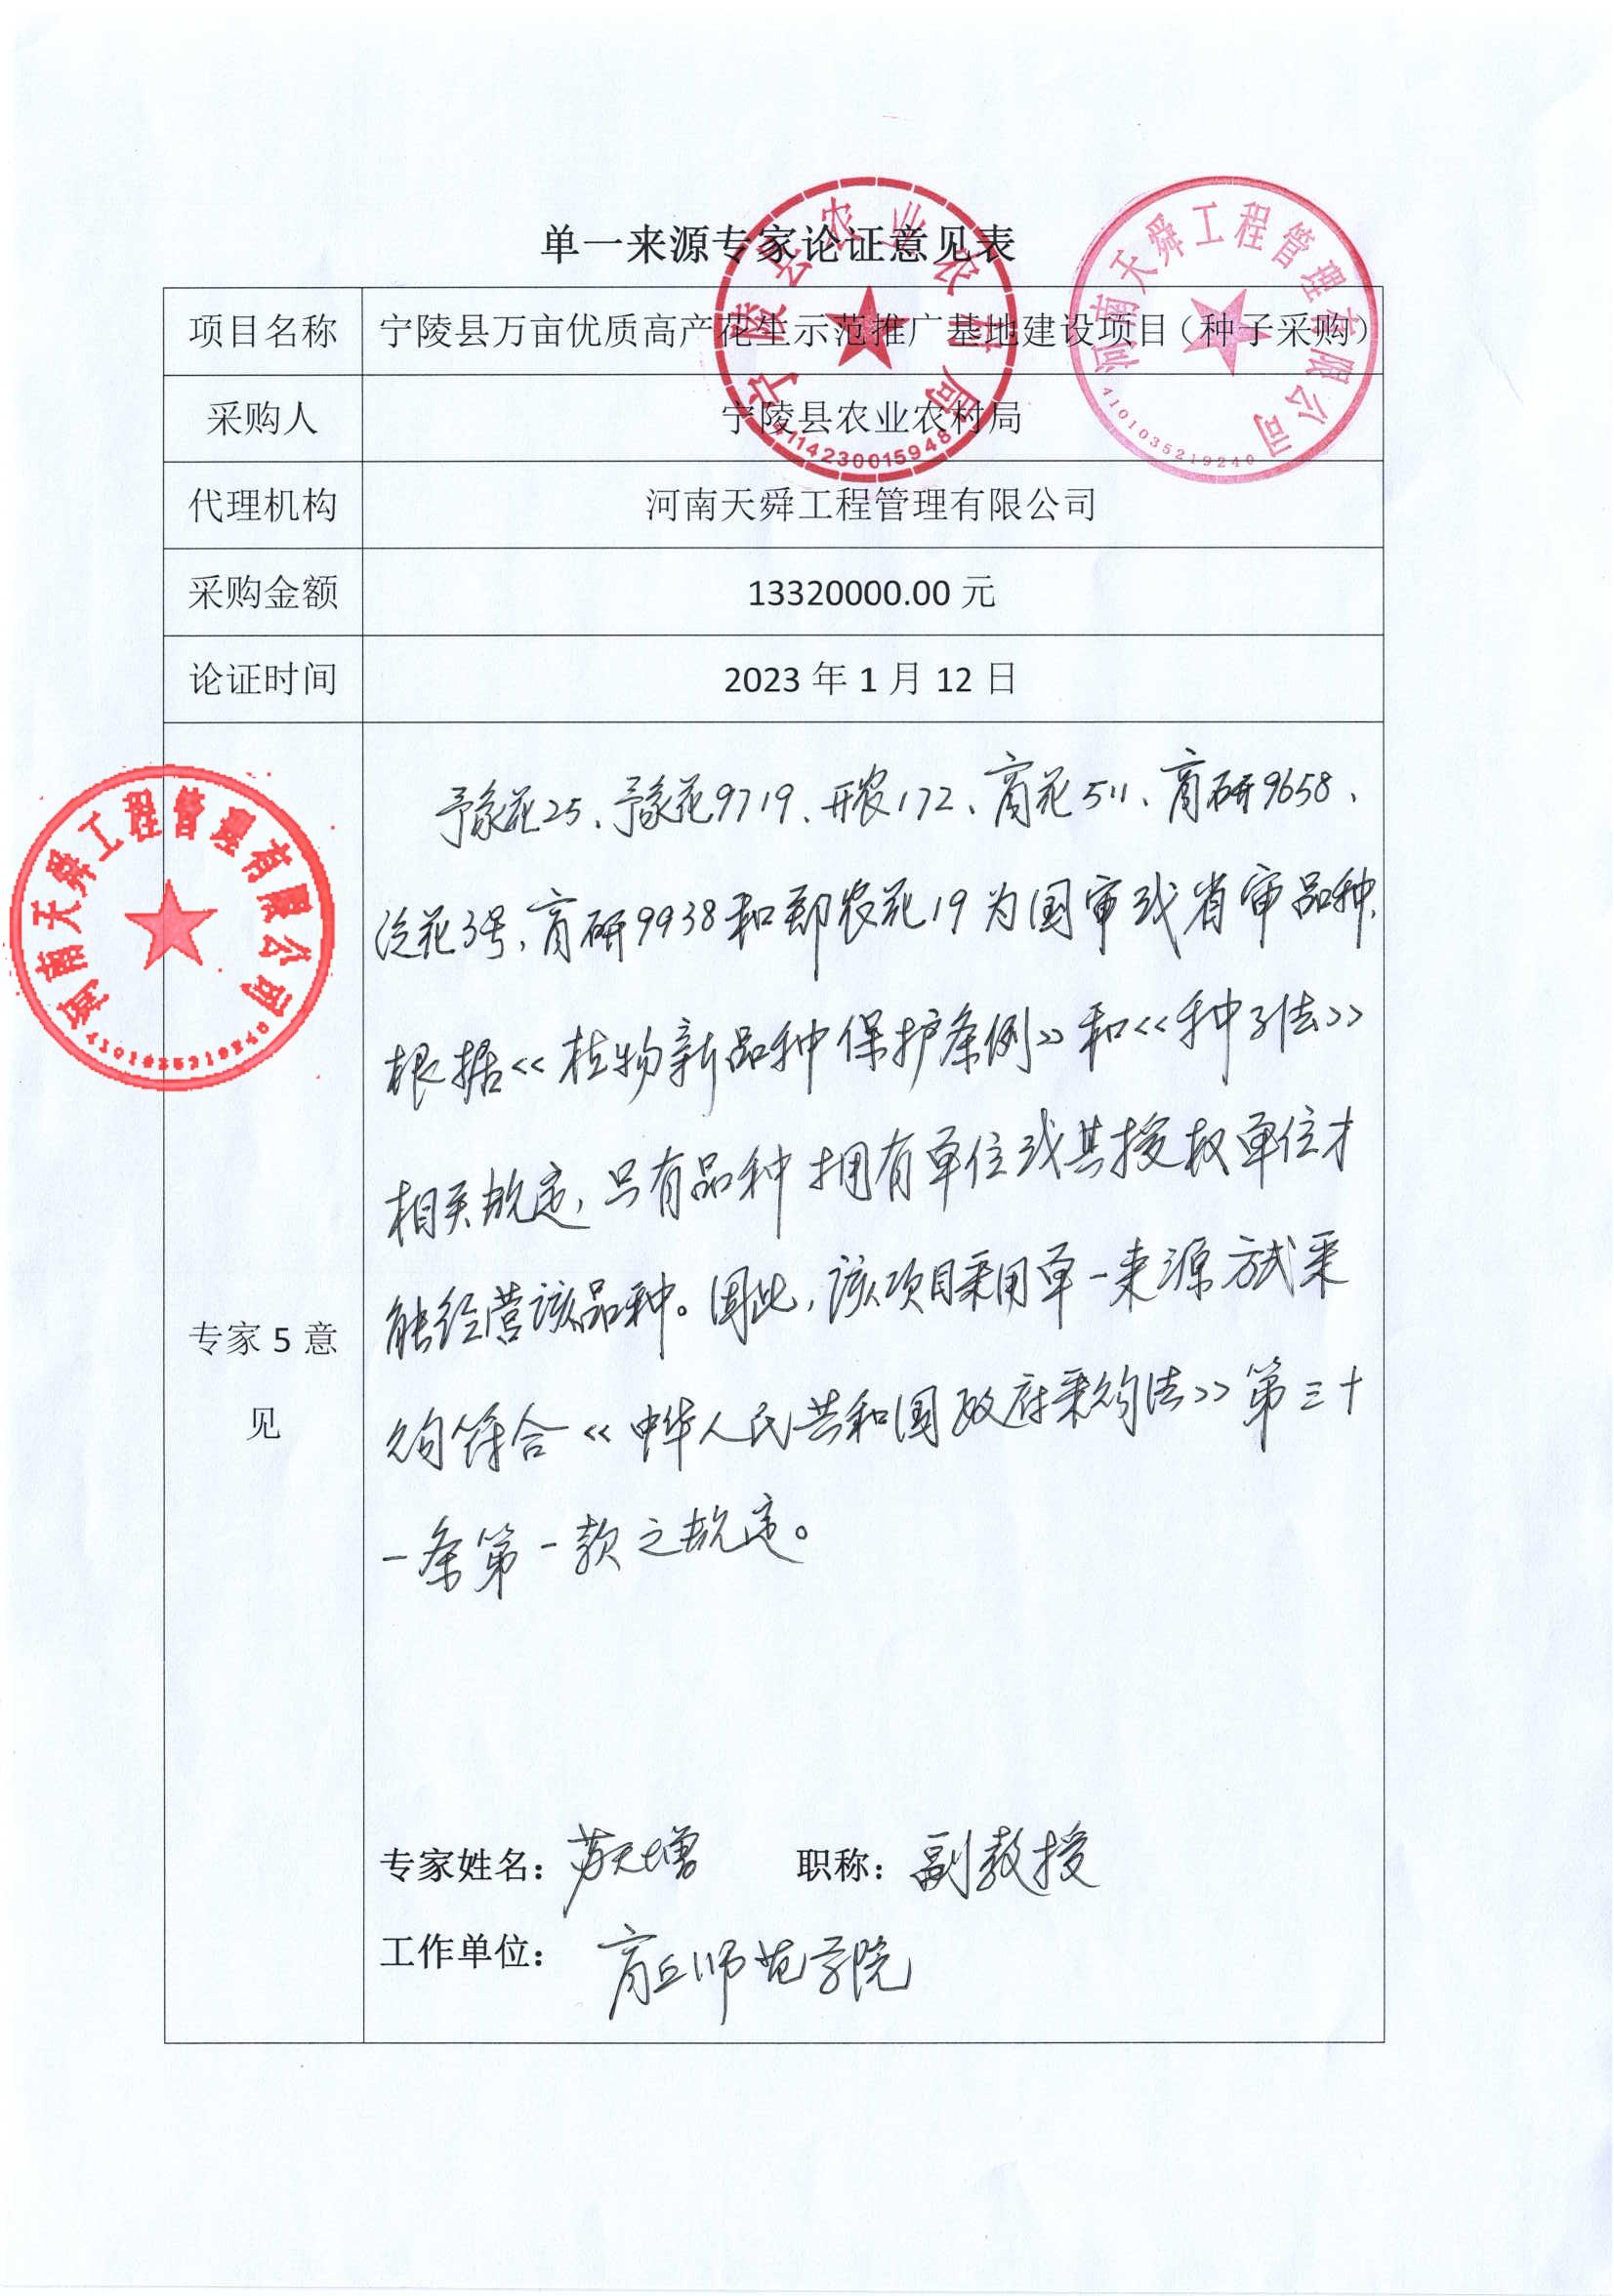 单一来源专家论证意见表
项目名称 宁陵县万亩优质高产花生示范推广基地建设项目（种子采购）
采购人 宁陵县农业农村局
代理机构 河南天舜工程管理有限公司
采购金额 13320000.00 元
论证时间 2023 年 1 月 12 日
专家 5 意见
豫花25、豫花9719、开农172、商花511、商研9658、
泛花3号，商研9938和郑农花19为国审或省审品种，
根据《植物新品种保护条例》和《种子法》
相关规定，只有品种拥有单位或其授权单位才
能经营该品种。因此，该项目采用单一来源方式采
购符合《中华人民共和国政府采购法》第三十
一条第一款之规定。
专家姓名：苏天增 职称：副教授
工作单位：商丘师范学院
宁陵县农业农村局
4114230015948
河南天舜工程管理有限公司
4101035219240
河南天舜工程管理有限公司
4101035219240